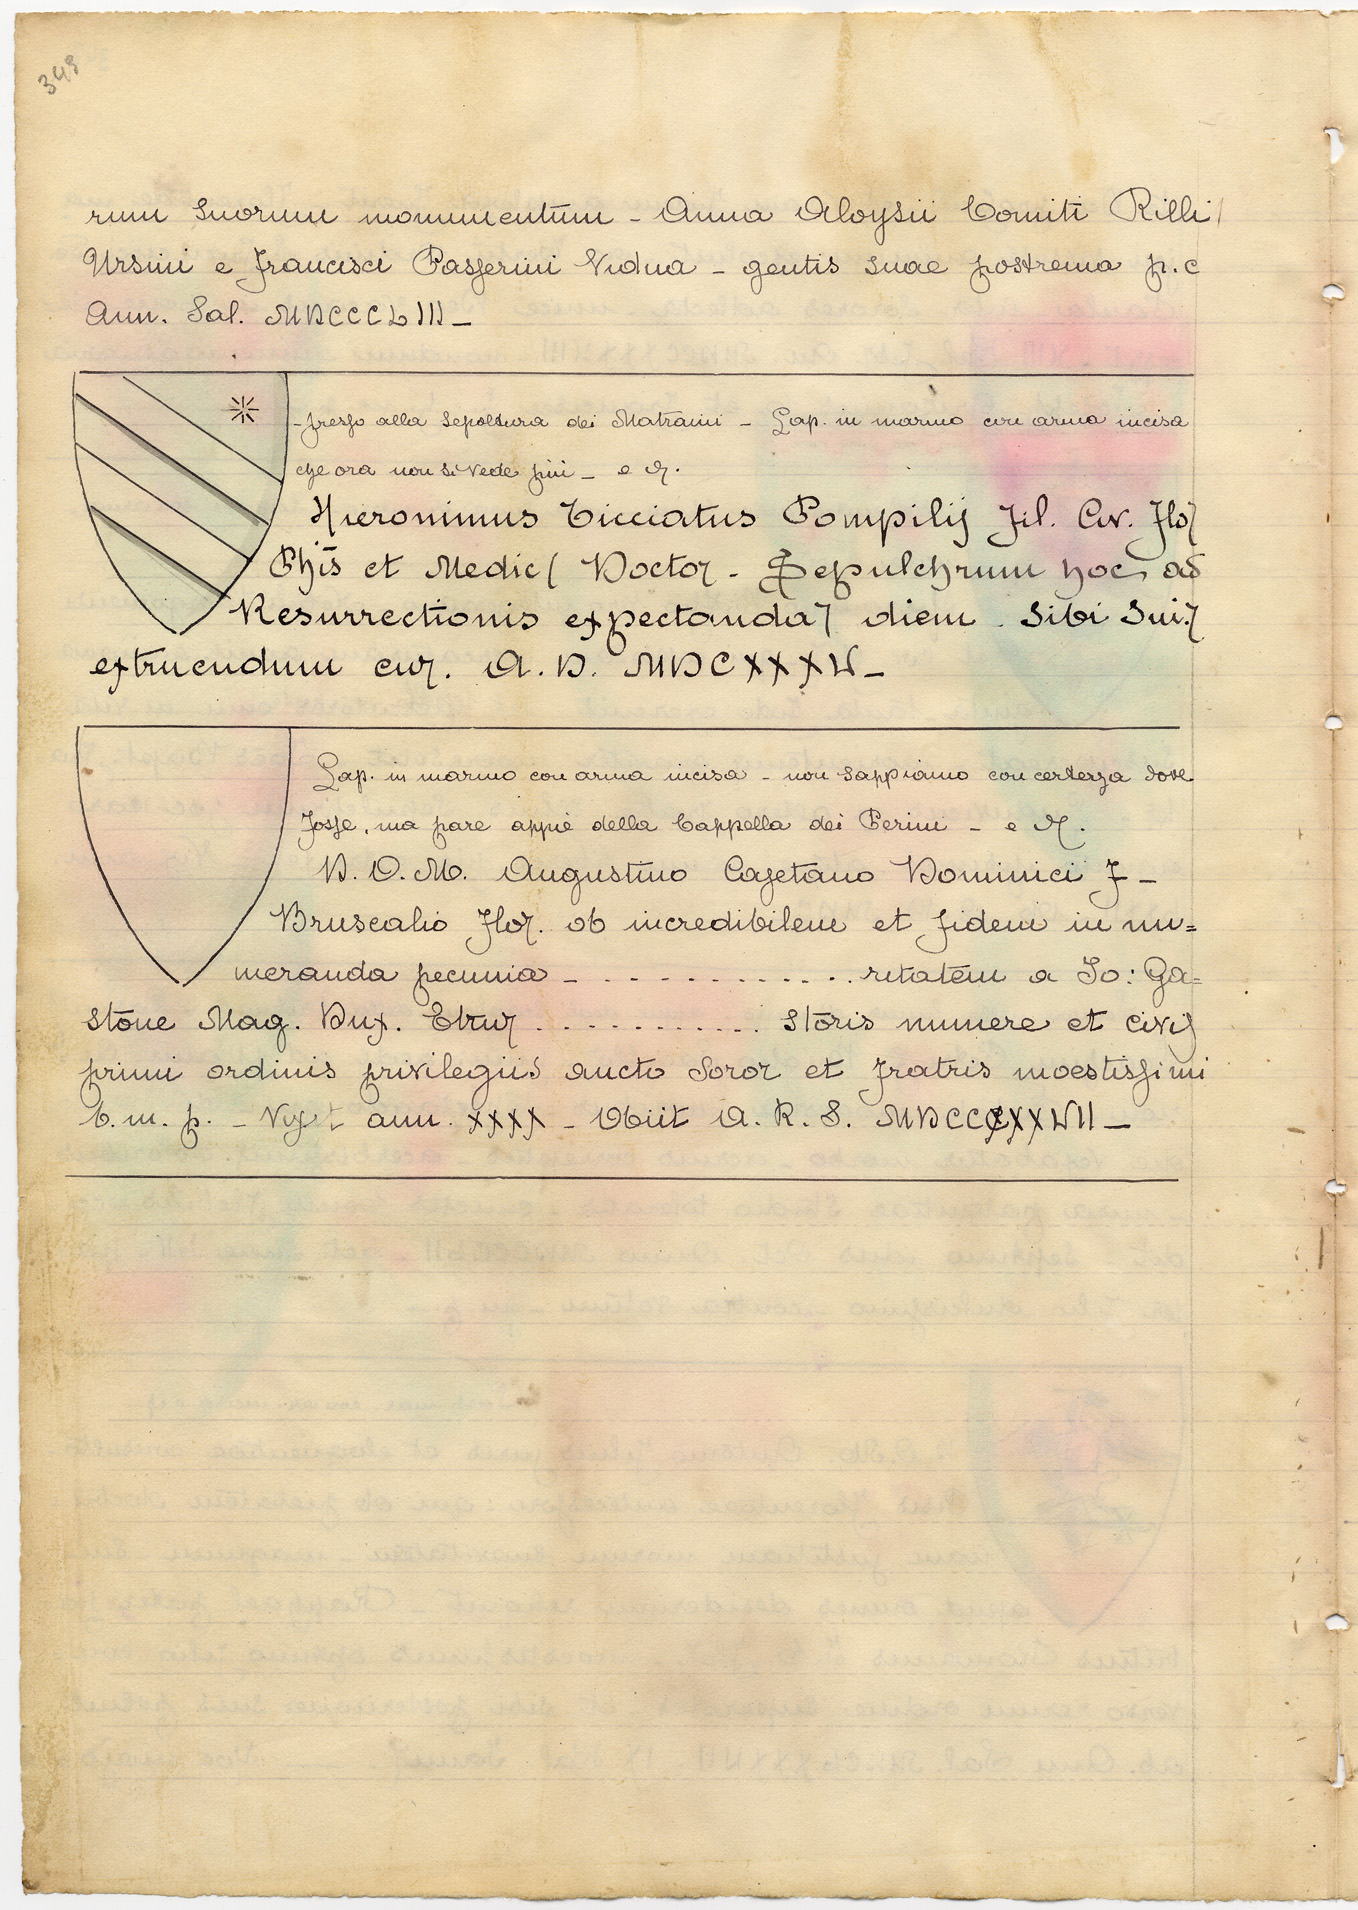 349
rum suorum monumentum - Anna Aloysii Comiti Rilli
Ursini e Francisci Passerini Vidua - gentis suae postrema p. c
Ann. Sal. MDCCCLIII -
- presso alla sepoltura dei Matraini - Lap. in marmo con arma incisa
che ora non si vede più - e
Hieronimus Ticciatus Pompilij fil. Civ. Flo
Phīs et Medic Doctor - Sepulchrum hoc ad
Resurrectionis expectanda diem . Sibi Suis
extruendum cur. A. D. MDCXXXV -
Lap. in marmo con arma incisa - non sappiamo con certezza dove
fosse, ma pare appiè della Cappella dei Perini - e
D. O. M. Augustino Cajetano Dominici F -
Bruscalio Flor. ob incredibilem et fidem in nu=
meranda pecunia - . . . . . . . . . . . . ritatem a Jo: Ga=
stone Mag. Dux. Etrur . . . . . . . . . . . storis munere et civis
primi ordinis privilegiis aucto Soror et fratris moestissimi
b. m. p. - Vixt ann. XXXX - Obiit A. R. S. MDCCXXVII -